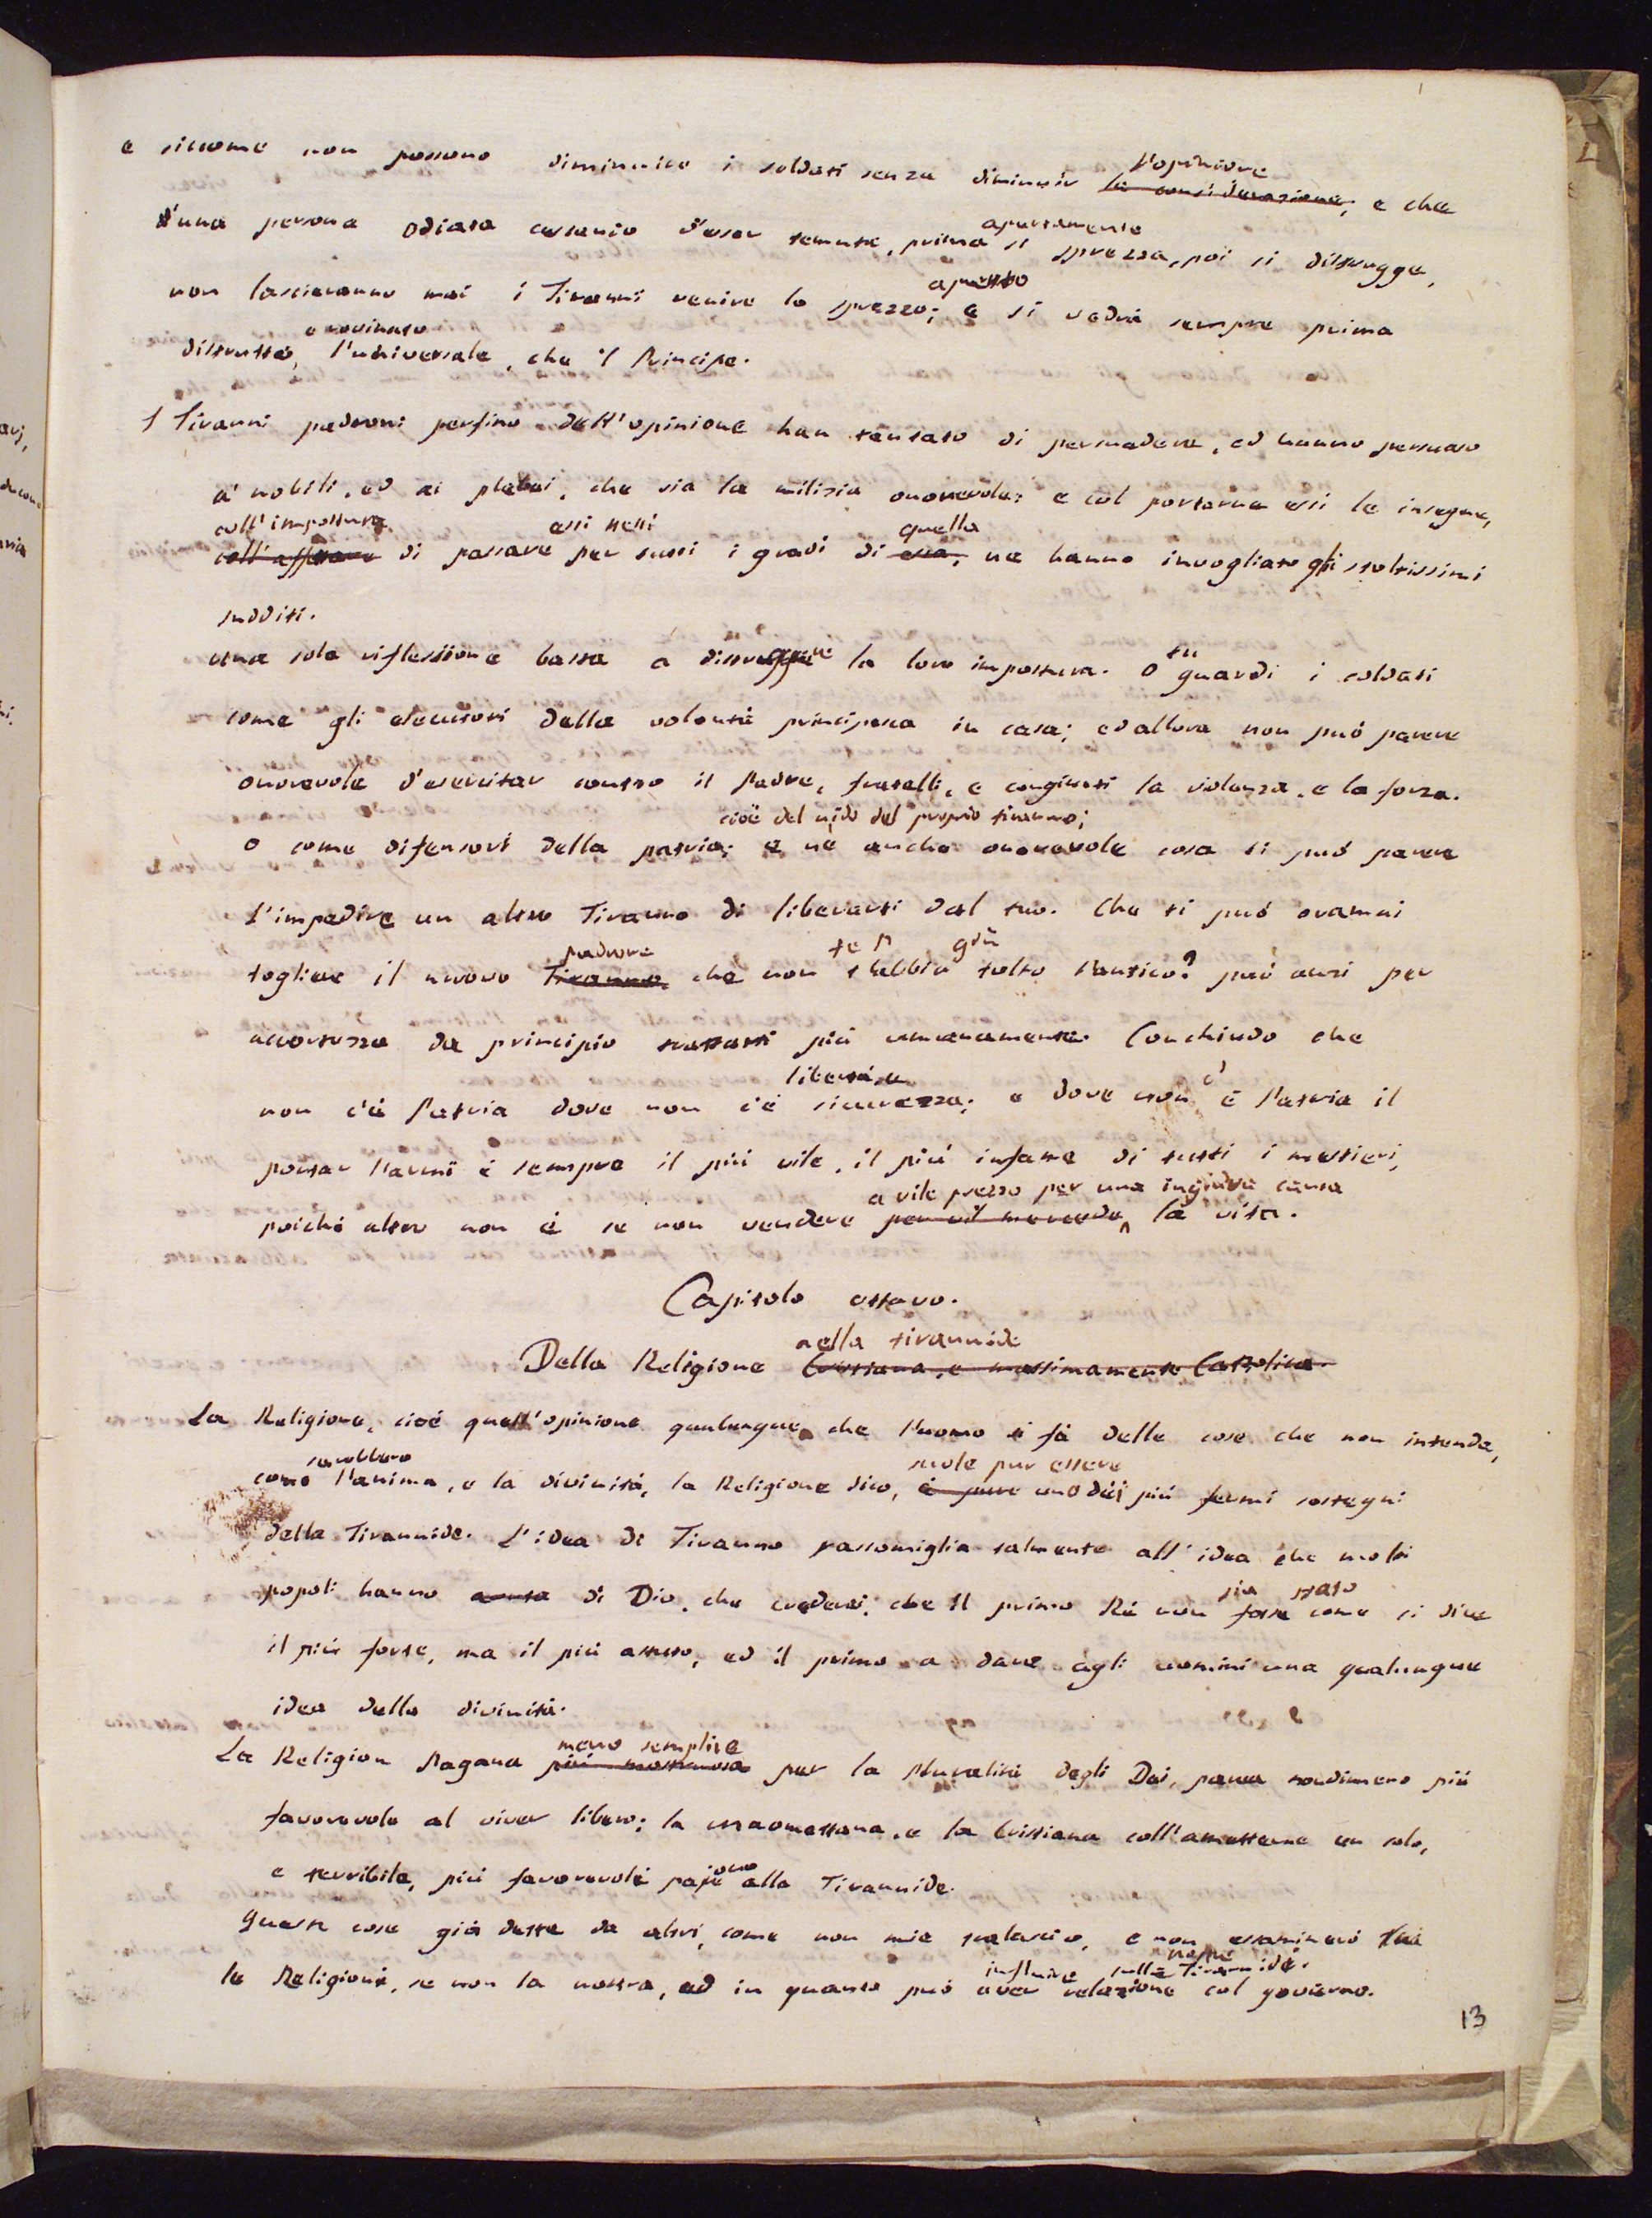 e siccome non possono diminuire i soldati senza diminuir l'opinione ~~la considerazione~~; e che
d'una persona odiata cessando d'esser temuta, prima si apertamente sprezza, poi si distrugge,
non lascieranno mai i Tiranni venire lo sprezzo aperto; e si vedrà sempre prima
distrutto, e rovinato l'universale, che il Principe.
I Tiranni padroni perfino dell'opinione han tentato di persuadere, ed hanno persuaso
a' nobili, ed ai plebei, che sia la milizia onorevole: e col portarne essi le insegne,
coll'impostura ~~coll'affettare~~ di passare essi stessi per tutti i gradi di quella ~~essa~~, ne hanno invogliato gli stoltissimi
sudditi.
una sola riflessione basta a distruggere la loro impostura. O tu guardi i soldati
come gli esecutori della volontà principesca in casa; ed allora non può parere
onorevole d'esercitar contro il Padre, fratelli, e congiunti la violenza, e la forza.
O come difensori della patria; cioè del nido del proprio tiranno; e nè anche onorevole cosa ti può parere
l'impedire un altro Tiranno di liberarti dal tuo. Che ti può oramai
togliere il nuovo padrone ~~Tiranno~~ che non te l'abbia già tolto l'antico? può anzi per
accortezza da principio trattarti più umanamente. Conchiudo che
non c'è Patria dove non c'è libertà, e sicurezza; e dove non c'è Patria il
portar l'armi è sempre il più vile, il più infame di tutti i mestieri,
poichè altro non è se non vendere a vile prezzo per una ingiusta causa ~~per vil mercede~~ la vita.
Capitolo ottavo.
Della Religione nella tirannide ~~Cristiana, e massimamente Cattolica.~~
La Religione, cioè quell'opinione qualunque che l'uomo si fà delle cose che non intende,
come sarebbero l'anima, e la divinità, la Religione dico, suole pur essere ~~è pure~~ uno dei più fermi sostegni
della Tirannide. L'idea di Tiranno rassomiglia talmente all'idea che molti
popoli hanno ~~avuta~~ di Dio, che crederei, che il primo Rè non sia stato ~~fosse~~ come si dice
il più forte, ma il più astuto, ed il primo a dare agli uomini una qualunque
idea della divinità.
La Religion Pagana meno semplice ~~più mostruosa~~ per la pluralità degli Dei, parea nondimeno più
favorevole al viver libero; la maomettana, e la Cristiana coll'ametterne un solo,
e terribile, più favorevoli pajono alla Tirannide.
Queste cose già dette da altri, come non mie tralascio, e non esaminerò
le Religioni, se non la nostra, ed in quanto può influire sulle nostre Tirannidi. aver relazione col governo.
13